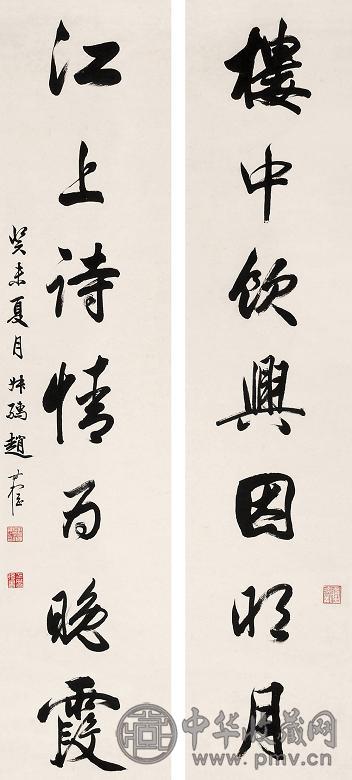 樓中飲興因明月
江上詩情為晚霞
癸未夏月叔孺趙時棡
中华收藏网
www.pmv.cn